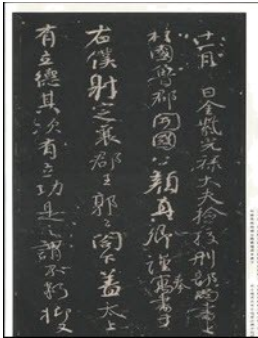 十一月 日金紫光祿大夫檢校刑部尚書上
柱國魯郡開國公顏真卿謹奉寓書于
右僕射定襄郡王郭公閣下蓋太上
有立德其次有立功是之謂不朽抑又